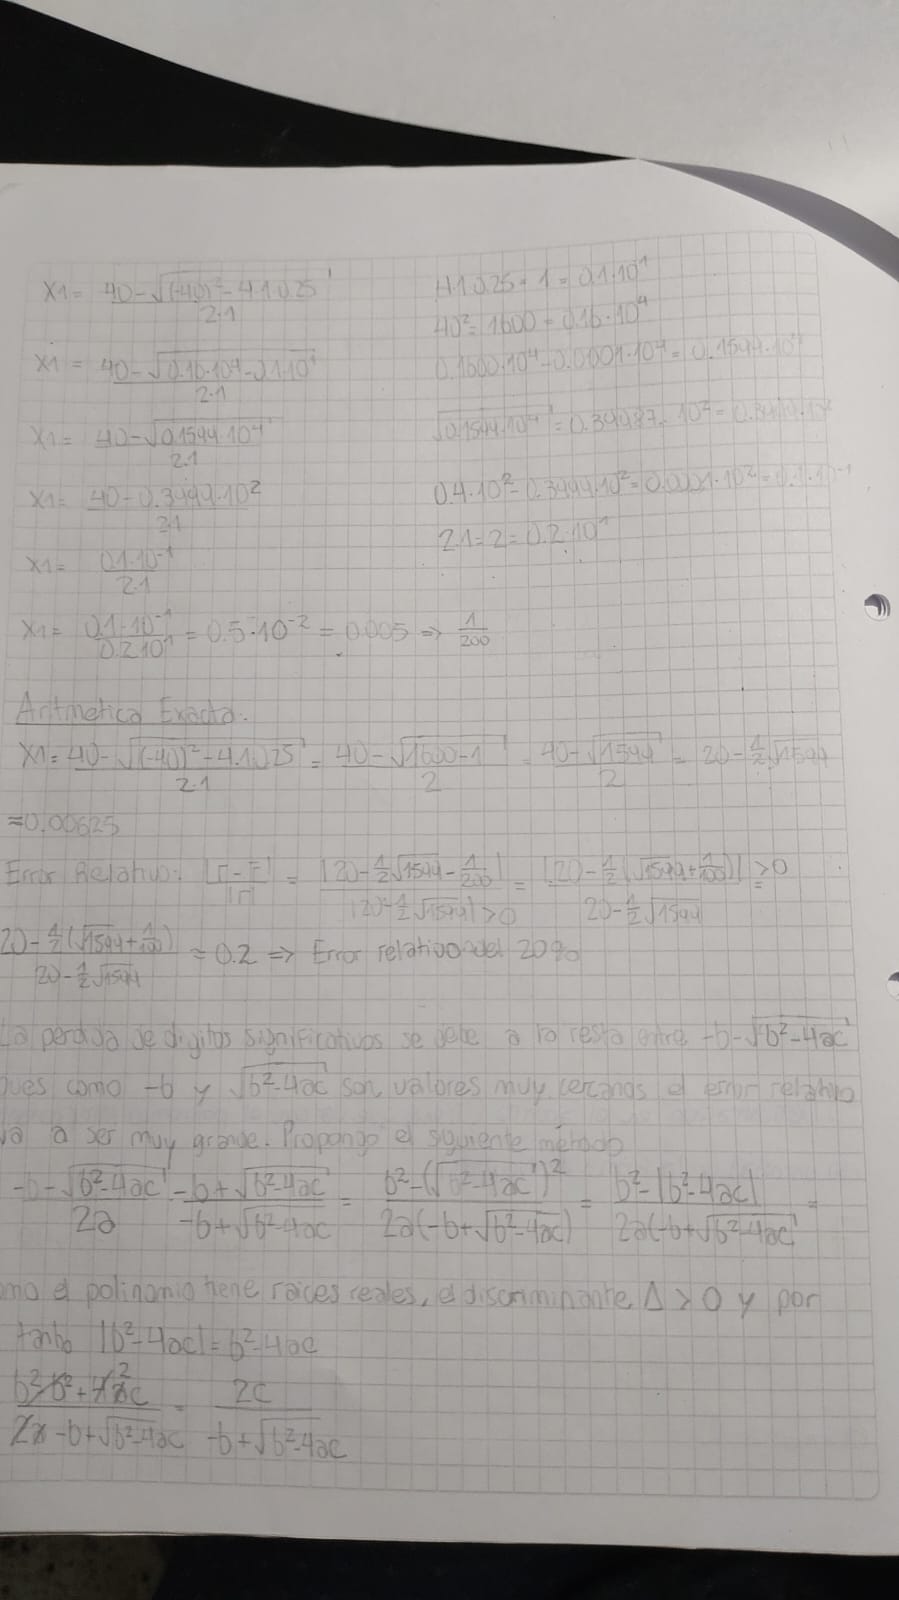 X1 = (40-√((-40)²-4·1·0.25))/(2·1)    4·1·0.25 = 1 = 0.1·10¹
40² = 1600 = 0.16·10⁴
X1 = (40-√(0.16·10⁴-0.1·10¹))/(2·1)    0.1600·10⁴-0.0001·10⁴ = 0.1599·10⁴
X1 = (40-√(0.1599·10⁴))/(2·1)    √(0.1599·10⁴) = 0.39987·10² = 0.3999·10²
X1 = (40-0.3999·10²)/(2·1)    0.4·10²-0.3999·10² = 0.0001·10² = 0.1·10⁻¹
2·1 = 2 = 0.2·10¹
X1 = (0.1·10⁻¹)/(2·1)
X1 = (0.1·10⁻¹)/(0.2·10¹) = 0.5·10⁻² = 0.005 ⇒ 1/200
Aritmetica Exacta.
X1 = (40-√((-40)²-4·1·0.25))/(2·1) = (40-√(1600-1))/2 = (40-√1599)/2 = 20-½√1599
≈0,00625
Error Relativo: |r-r̄|/|r| = |20-½√1599-1/200|/|20-½√1599|>0 = |20-½(√1599+1/100)|/(20-½√1599) >0
(20-½(√1599+1/100))/(20-½√1599) ≈ 0.2 ⇒ Error relativo del 20%
La perdida de digitos significativos se debe a la resta entre -b-√(b²-4ac)
pues como -b y √(b²-4ac) son valores muy cercanos el error relativo
va a ser muy grande. Propongo el siguiente método
(-b-√(b²-4ac))/(2a) · (-b+√(b²-4ac))/(-b+√(b²-4ac)) = (b²-(√(b²-4ac))²)/(2a(-b+√(b²-4ac))) = (b²-|b²-4ac|)/(2a(-b+√(b²-4ac))) =
omo el polinomio tiene raices reales, el discriminante Δ>0 y por
tanto |b²-4ac| = b²-4ac
(b²-b²+4ac)/(2a -b+√(b²-4ac)) = 2c/(-b+√(b²-4ac))